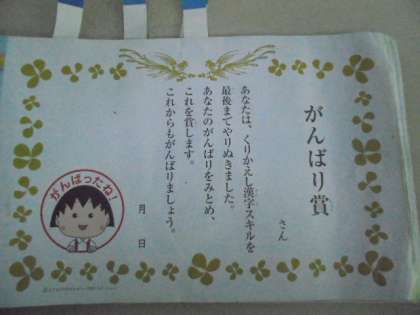 がんばり賞
さん
あなたは、くりかえし漢字スキルを
最後までやりぬきました。
あなたのがんばりをみとめ、
これを賞します。
これからもがんばりましょう。
月 日
がんばったね!